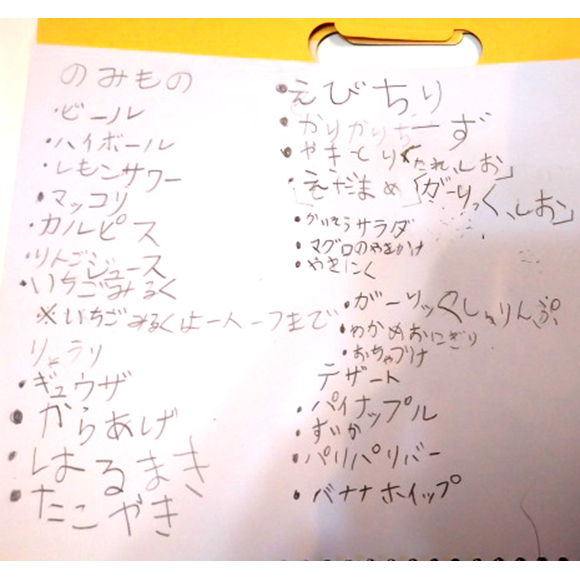 のみもの
・ビール
・ハイボール
・レモンサワー
・マッコリ
・カルピス
・りんごジュース
・いちごみるく
※いちごみるくは一人一つまで
りょうり
・ギュウザ
・からあげ
・はるまき
・たこやき
・えびちり
・かりかりちーず
・やきとり「たれ、しお」
・「えだまめ」「がーりっく、しお」
・かいそうサラダ
・マグロのやまかけ
・やきにく
・がーりっくしゅりんぷ
・わかめおにぎり
・おちゃづけ
デザート
・パイナップル
・すいか
・パリパリバー
・バナナホイップ